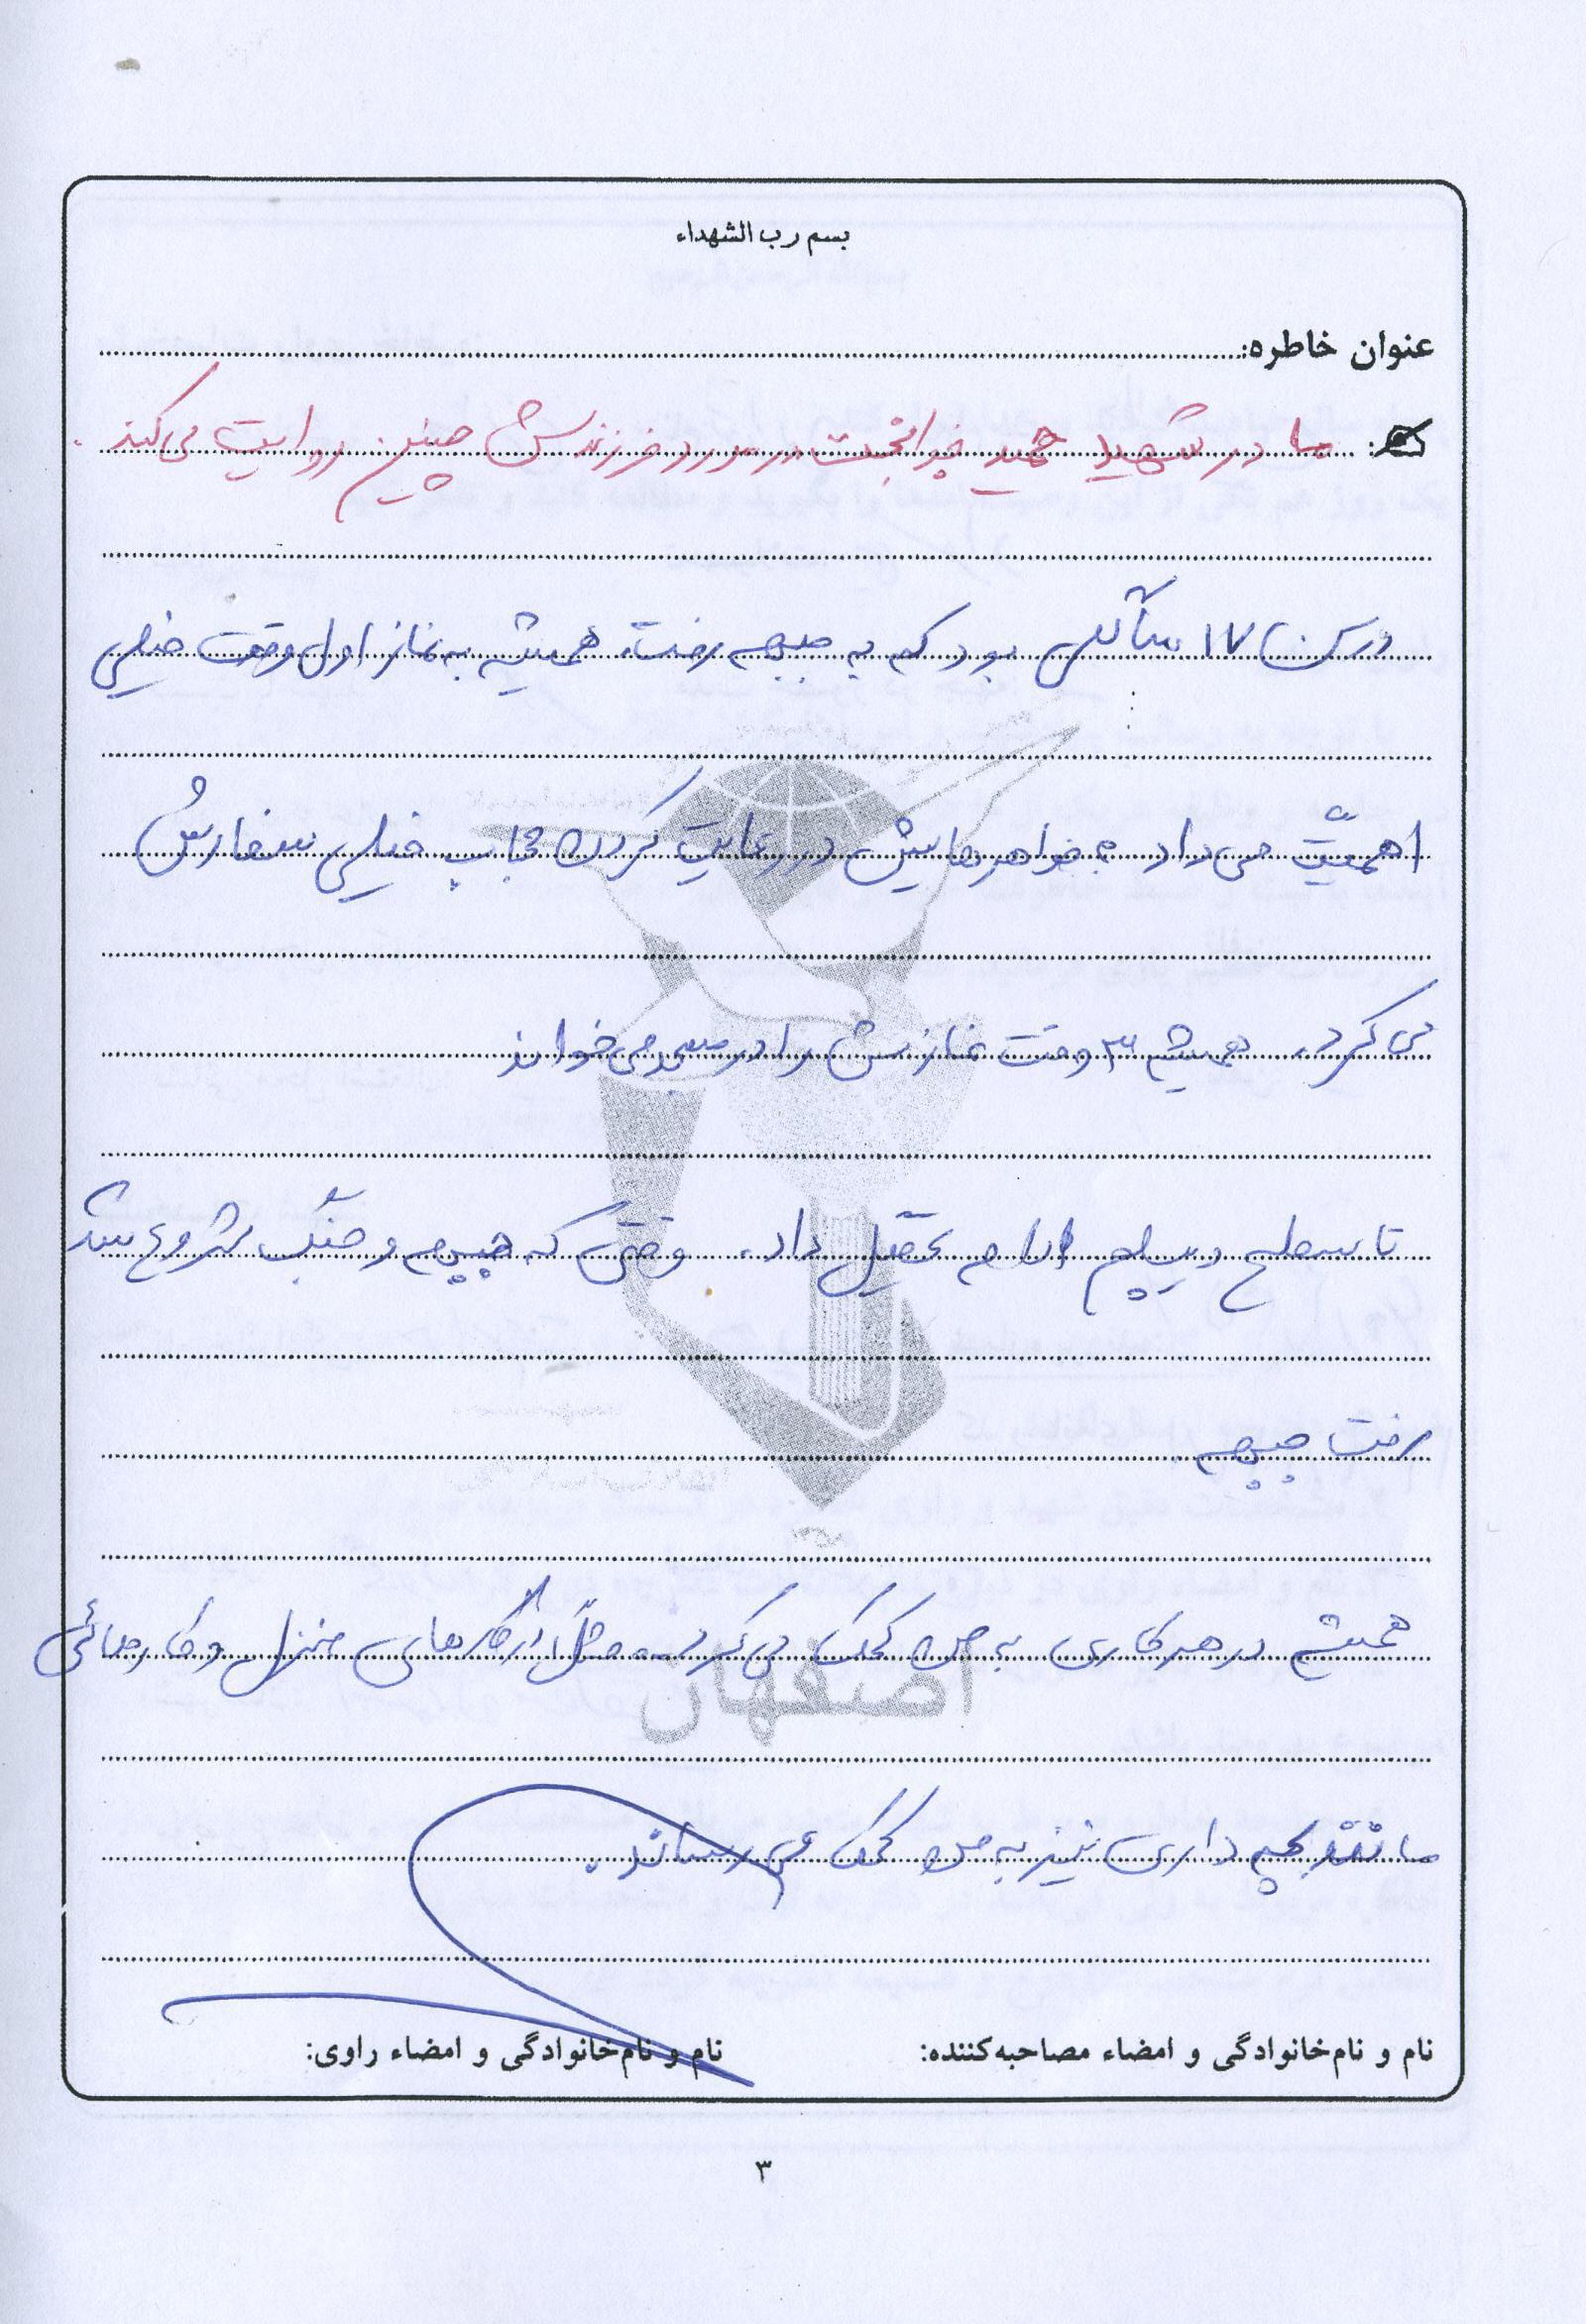 بسم رب الشهداء
عنوان خاطره:
مادر شهید حمید در مورد فرزندش چنین روایت می‌کند.
در سن ۱۷ سالگی بود که به جبهه رفت. همیشه به نماز اول وقت خیلی
اهمیّت می‌داد به خواهرهایش در رعایت کردن حجاب خیلی سفارش
می‌کرد. همیشه ۳ وقت نمازش را در مسجد می‌خواند
تا سطح دیپلم ادامه تحصیل داد. وقتی که جبهه و جنگ شروع شد
رفت جبهه.
همیشه در هر کاری به من کمک می‌کرد. مثلاً در کارهای منزل و کارهائی
مانند بچه داری نیز به من کمک می‌رساند.
اصفهان
نام و نام‌خانوادگی و امضاء مصاحبه‌کننده: نام و نام‌خانوادگی و امضاء راوی:
۳